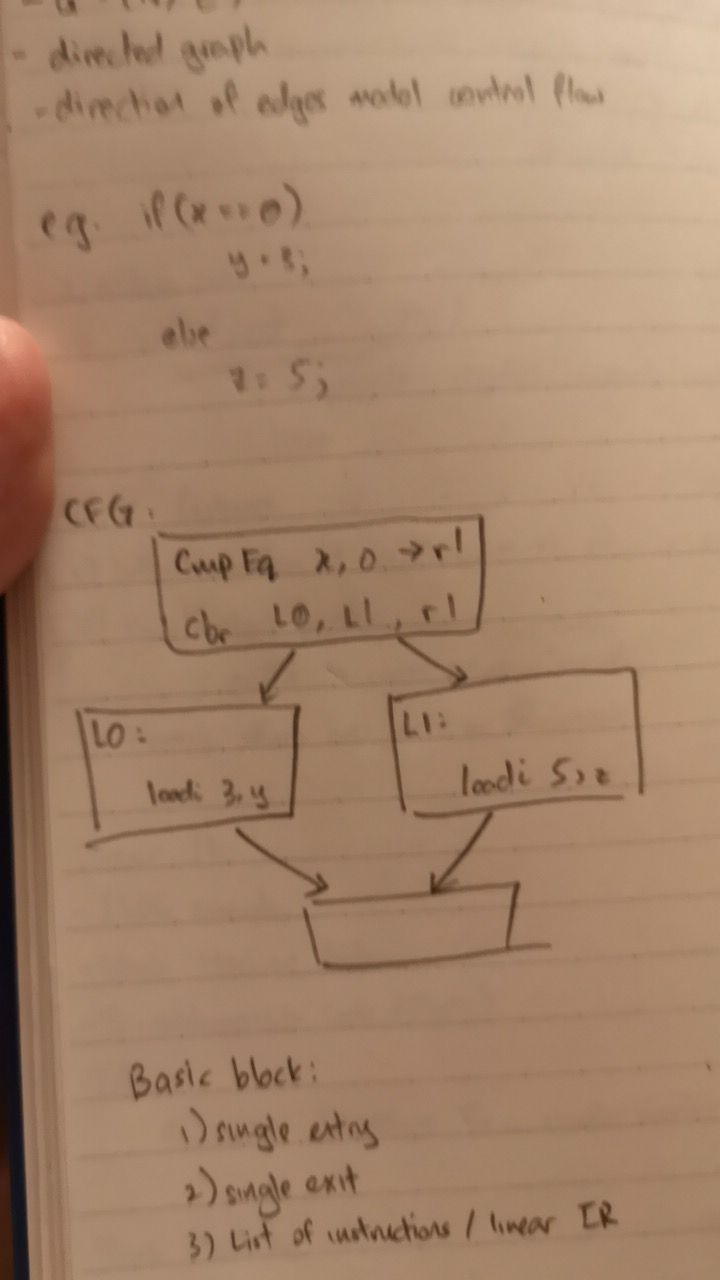 - directed graph
- direction of edges model control flow
eg. if (x == 0)
y = 3;
else
z = 5;
CFG:
Cmp Eq x, 0 → r1
cbr L0, L1, r1
L0:
loadi 3, y
L1:
loadi 5, z
Basic block:
1) single entry
2) single exit
3) List of instructions / linear IR